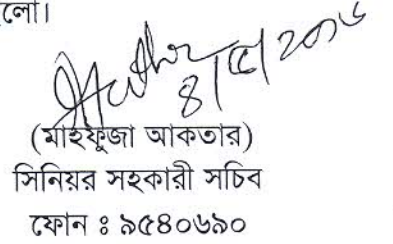 লো।
৪/৫/২০১৬
(মাহফুজা আকতার)
সিনিয়র সহকারী সচিব
ফোন ঃ ৯৫৪০৬৯০